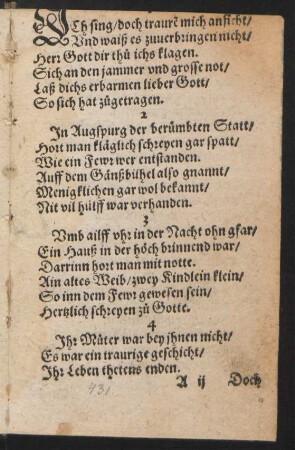 ICh sing/ doch traurẽ mich anficht/
Vnd waiß es zuuerbringen nicht/
Herr Gott dir thů ichs klagen.
Sich an den jammer vnd grosse not/
Laß dichs erbarmen lieber Gott/
So sich hat zůgetragen.
2
In Augspurg der berümbten Statt/
Hort man kläglich schreyen gar spatt/
Wie ein Fewr wer entstanden.
Auff dem Gänßbühel also gnannt/
Menigklichen gar wol bekannt/
Nit vil hülff war verhanden.
3
Vmb ailff vhr in der Nacht ohn gfar/
Ein Hauß in der höch brinnend war/
Darrinn hort man mit notte.
Ain altes Weib/ zwey Kindlein klein/
So inn dem Fewr gewesen sein/
Hertzlich schreyen zů Gotte.
4
Ihr Můter war bey jhnen nicht/
Es war ein traurige geschicht/
Ihr Leben thetens enden.
A ij Doch
431